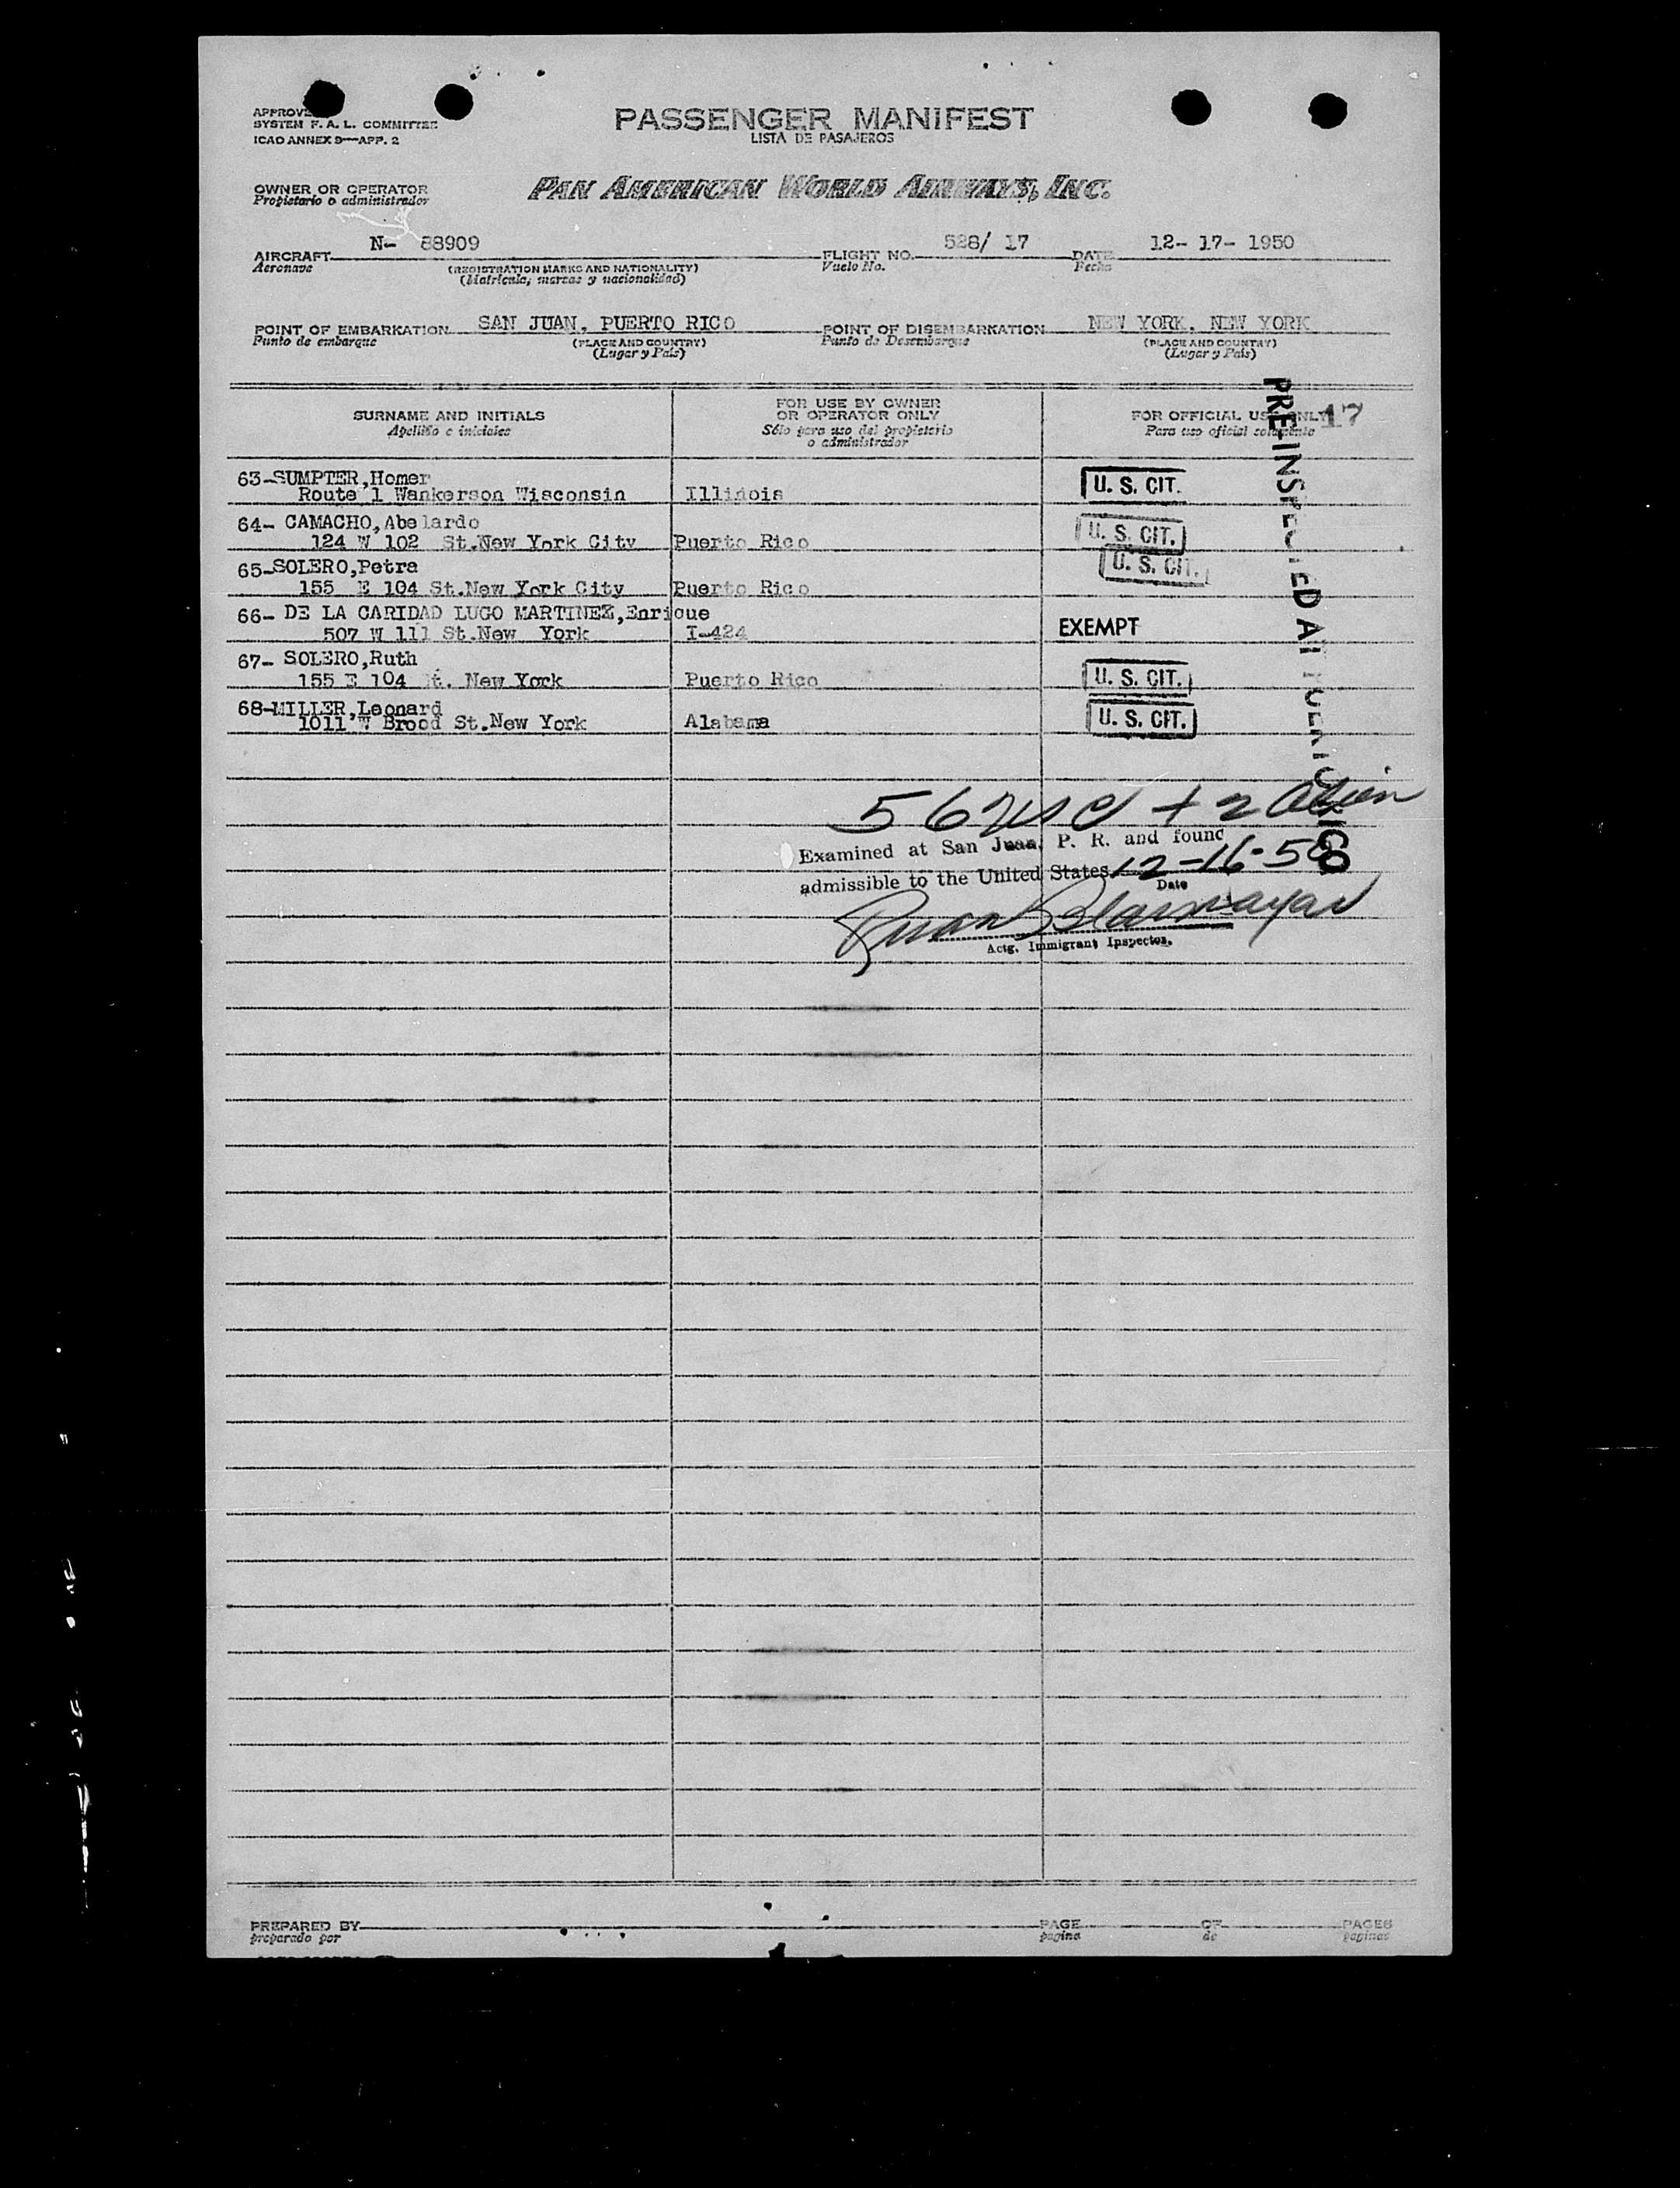 APPROVE
SYSTEM F. A. L. COMMITTEE
ICAO ANNEX 9—APP. 2
PASSENGER MANIFEST
LISTA DE PASAJEROS
OWNER OR OPERATOR
Propietario o administrador
PAN AMERICAN WORLD AIRWAYS, INC.
AIRCRAFT N- 88909
Aeronave
(REGISTRATION MARKS AND NATIONALITY)
(Matrícula, marcas y nacionalidad)
FLIGHT NO. 528/ 17
Vuelo No.
DATE 12- 17- 1950
Fecha
POINT OF EMBARKATION SAN JUAN, PUERTO RICO
Punto de embarque
(PLACE AND COUNTRY)
(Lugar y País)
POINT OF DISEMBARKATION NEW YORK, NEW YORK
Punto de Desembarque
(PLACE AND COUNTRY)
(Lugar y País)
SURNAME AND INITIALS
Apellido e iniciales
FOR USE BY OWNER
OR OPERATOR ONLY
Sólo para uso del propietario
o administrador
FOR OFFICIAL USE ONLY
Para uso oficial solamente
17
PRE-INSPECTED AT PUERTO RICO
63-SUMPTER,Homer
Route 1 Wankerson Wisconsin Illinois U. S. CIT.
64- CAMACHO,Abelardo
124 W 102 St.New York City Puerto Rico U. S. CIT.
65-SOLERO,Petra
155 E 104 St.New York City Puerto Rico U. S. CIT.
66- DE LA CARIDAD LUGO MARTINEZ,Enrique
507 W 111 St.New York I-424 EXEMPT
67- SOLERO,Ruth
155 E 104 St. New York Puerto Rico U. S. CIT.
68-MILLER,Leonard
1011 W Brood St.New York Alabama U. S. CIT.
56 usc + 2 alien
Examined at San Juan, P. R. and found
admissible to the United States 12-16-50
Date
Actg. Immigrant Inspector.
PREPARED BY
preparado por
PAGE OF PAGES
pagina de paginas